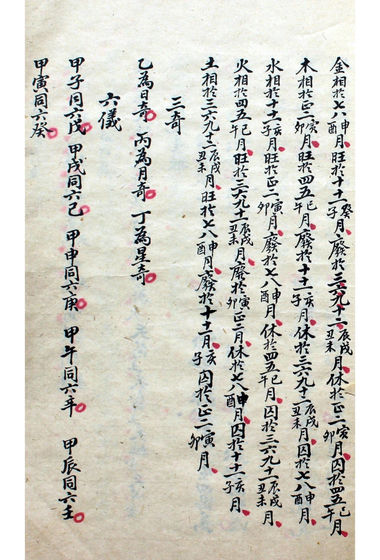 金相於七八申酉月旺於十十一癸子月廢於三六九十二辰戌丑未月休於正二寅卯月囚於四五巳午月
木相於正二寅卯月旺於四五巳午月廢於十十一亥子月休於三六九十二辰戌丑未月囚於七八申酉月
水相於十十一亥子月旺於正二寅卯月廢於七八申酉月休於四五巳午月囚於三六九十二辰戌丑未月
火相於四五巳午月旺於三六九十二辰戌丑未月廢於正二寅卯月休於七八申酉月囚於十十一亥子月
土相於三六九十二辰戌丑未月旺於七八申酉月廢於十十一月亥子囚於正二寅卯月
三奇
乙為日奇 丙為月奇 丁為星奇
六儀
甲子同六戊 甲戌同六己 甲申同六庚 甲午同六辛 甲辰同六壬
甲寅同六癸